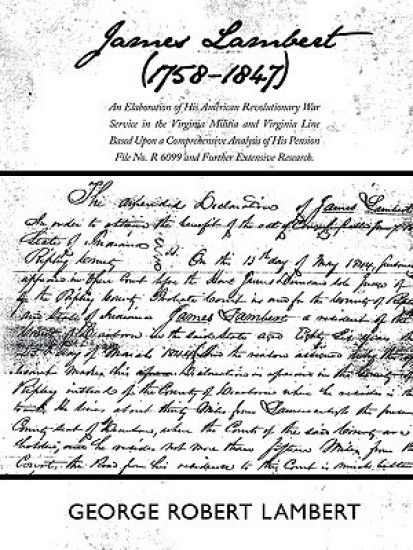 James Lambert
(1758-1847)
An Elaboration of His American Revolutionary War
Service in the Virginia Militia and Virginia Line
Based Upon a Comprehensive Analysis of His Pension
File No. R 6099 and Further Extensive Research.
The Declaration of James Lambert
In order to obtain the benefit of the act of Congress
State of Indiana
Ripley County On the 13th day of May 1844, personally
appeared in Open Court before the Hon James Duncan sole Judge of
the Ripley County Probate Court in and for the County of Ripley
and State of Indiana James Lambert a resident of the
County of Dearborn in the said State aged Eighty Six years the
day of March 1844 and the reasons
makes this Declaration in the County
Ripley instead of the County of Dearborn where he resides is that
he lives about thirty Miles from Lawrenceburgh the present
County seat of Dearborn, where the Courts of the said County are
holden, and he resides not more than fifteen Miles from the
Court, the Road from his residence to this Court is much better
GEORGE ROBERT LAMBERT